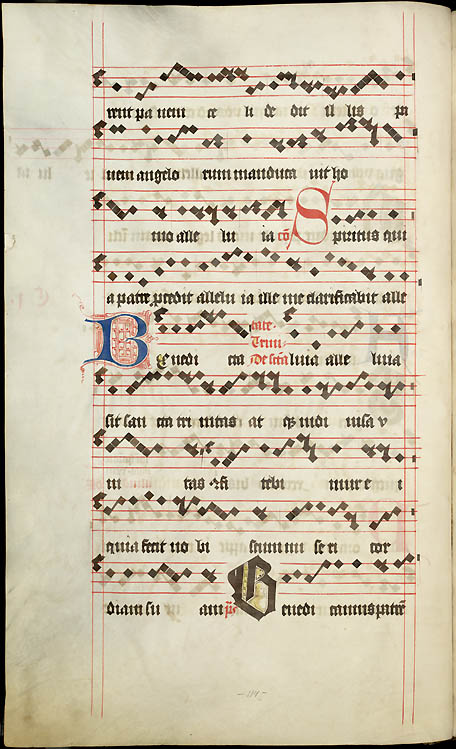 rent pa nem ce li de dit il lis pa
nem angelo rum manduca uit ho
mo alle lu ia cō Spiritus qui
a patre procedit allelu ia ille me clarificabit alle
De sctā Trini tate
Benedi cta luia alle luia
sit san cta tri nitas at qꝫ indi uisa v
ni tas confi tebi mur e i
quia fecit no bi scum mi se ri cor
diam su am ps Benedi camus patrē
114